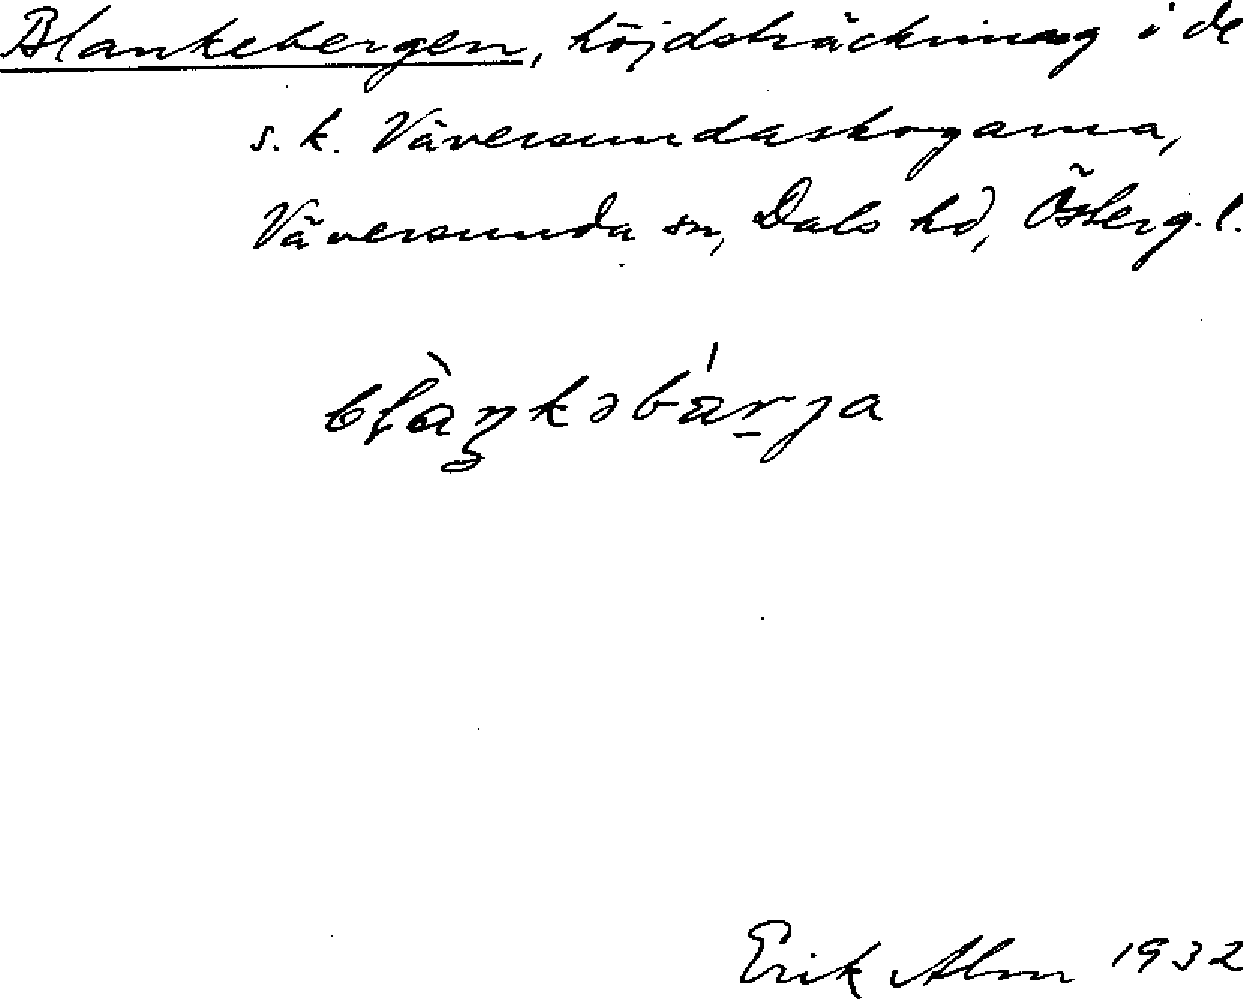 Blankebergen, höjdsträckning i de
s. k. Väversundaskogarna,
Väversunda sn, Dals hd, Österg. l.
blàŋkəbárja
Erik Alm 1932